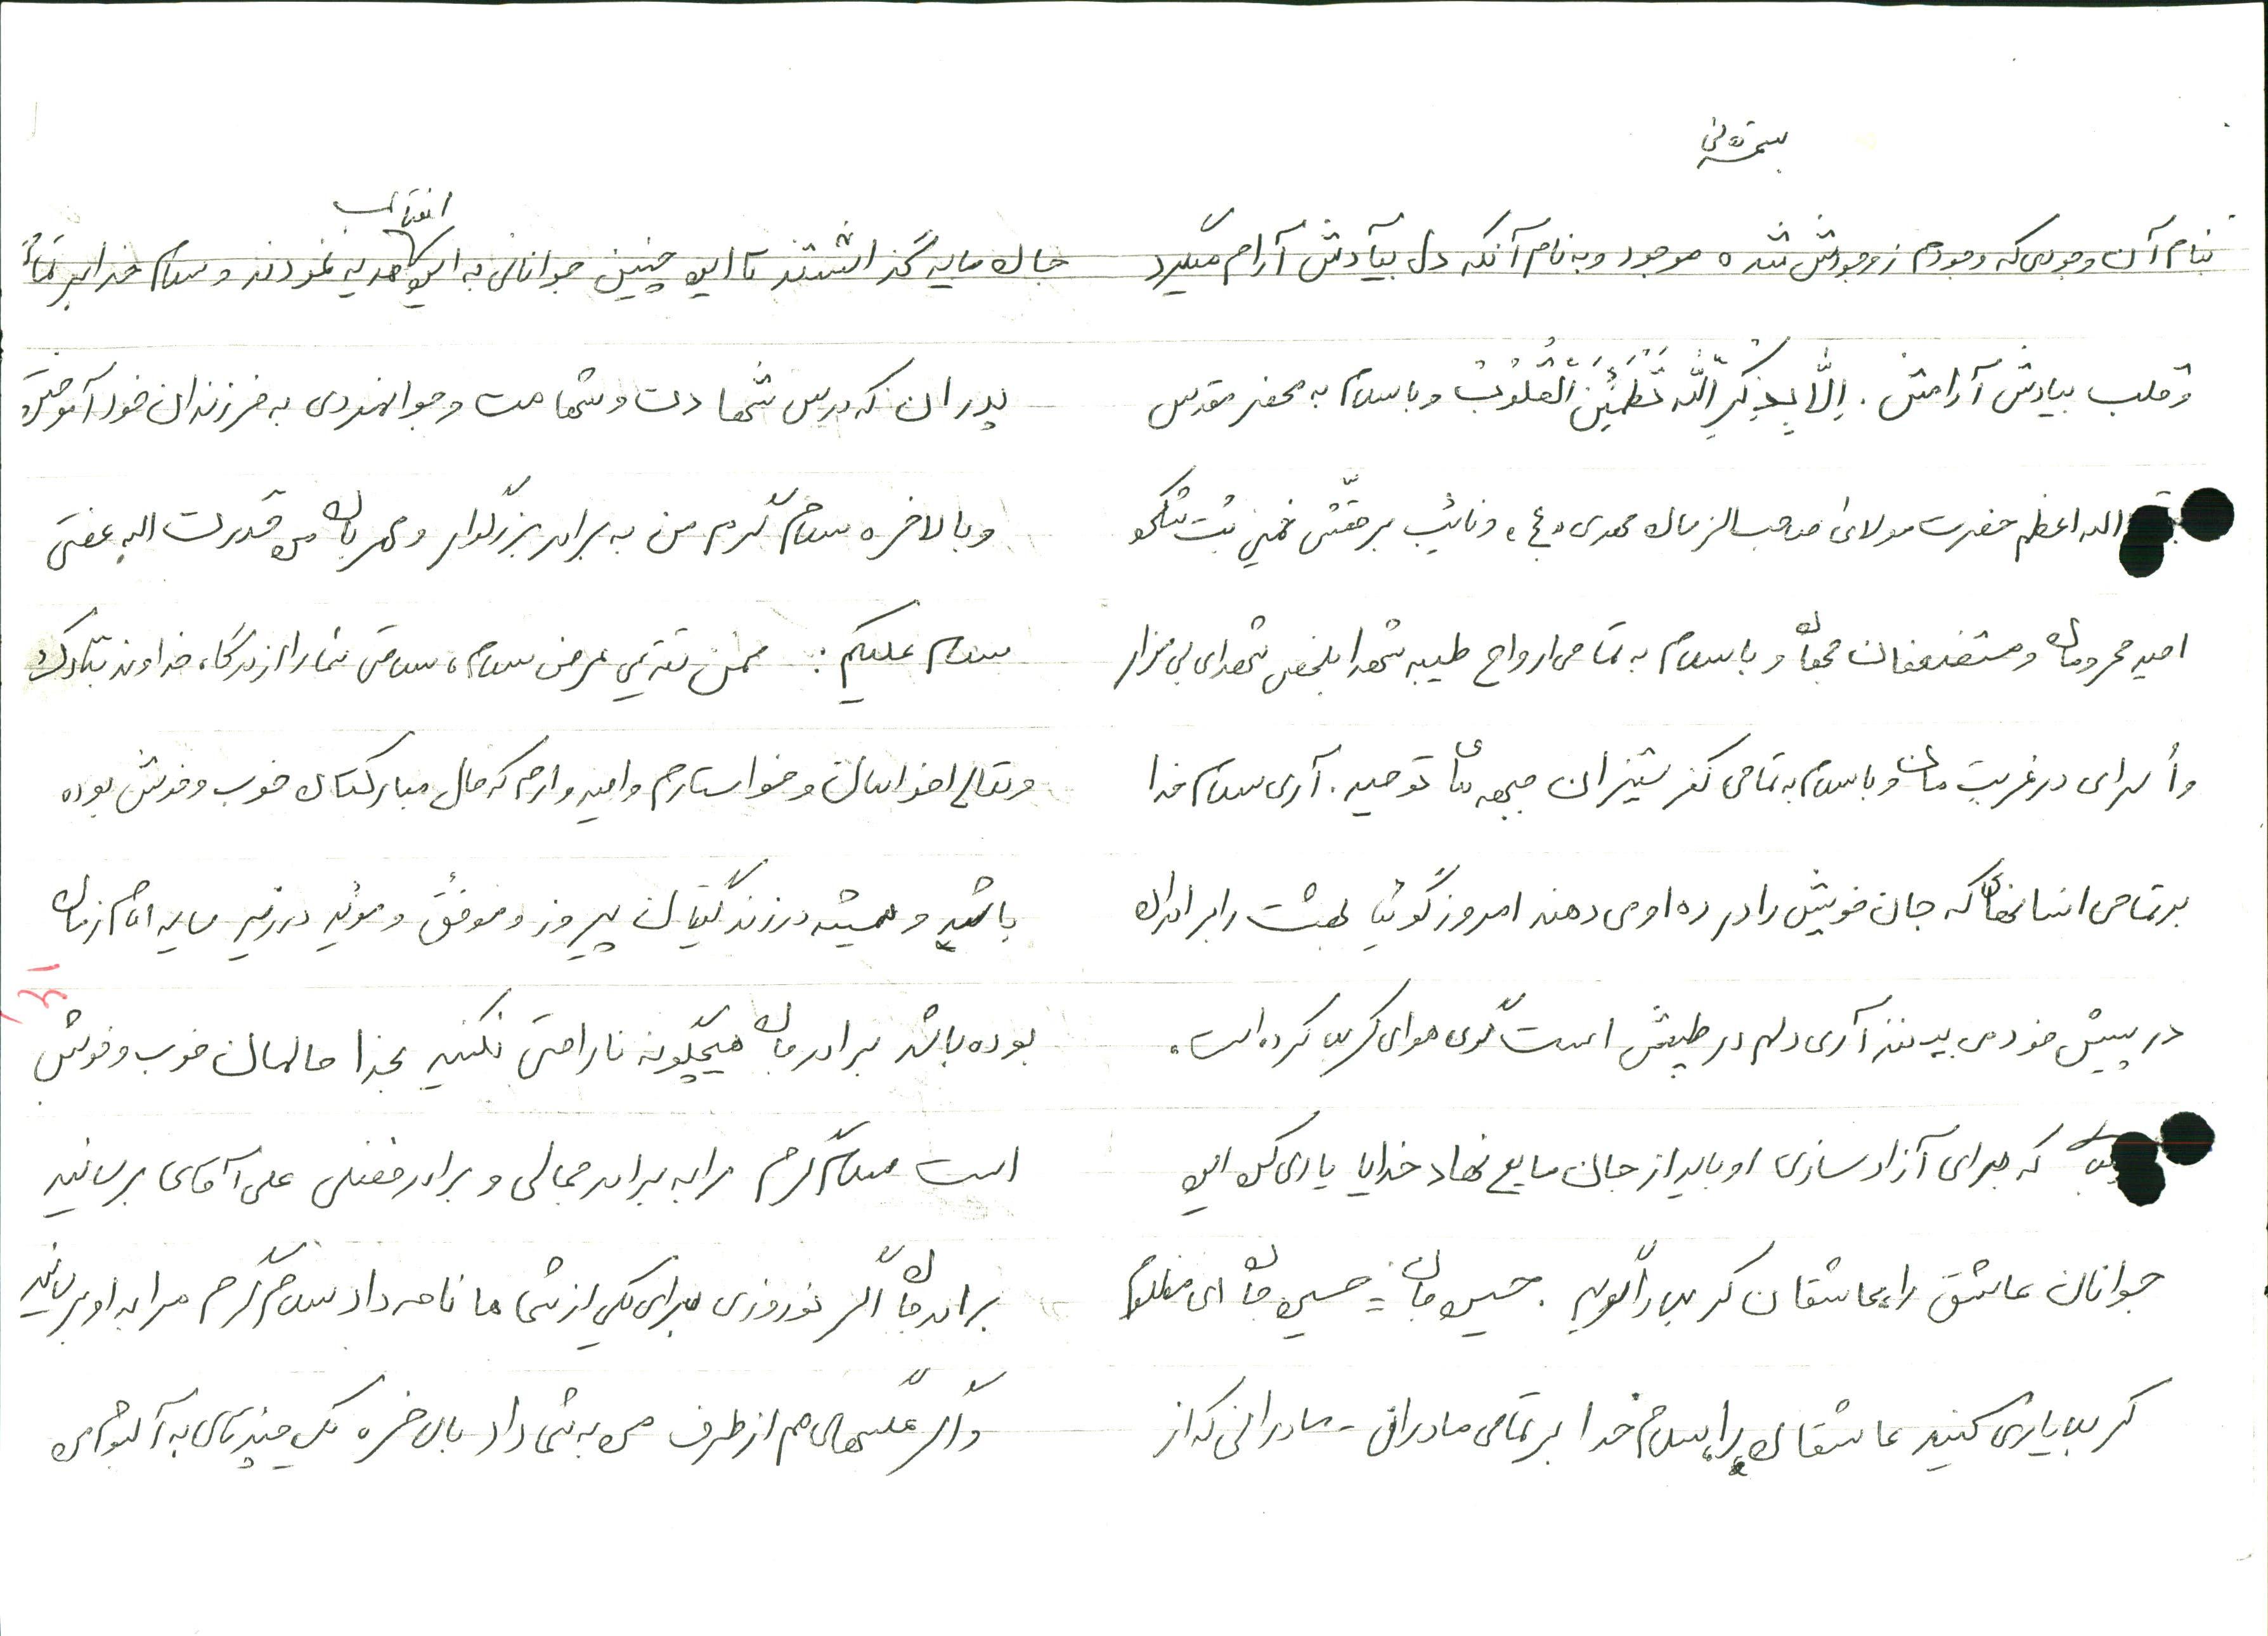 بسمه تعالی
بنام آن وجودی که وجودم ز وجودش شده موجود و به نام آنکه دل بیآدش آرام میگیرد
و قلب بیادش آرامش. اِلّا بِذِکرِ اللّه تَطمَئِنَ القُلوُب و با سلام به محضر مقدس
الله اعظم حضرت مولائی صاحب الزمان مهدی «ع» و نائب برحقّش خمینی بت شکن
امید محرومان و مستضعفان جهان و با سلام به تمامی ارواح طیبه شهدا بلخص شهدای بی مزار
و اُسرای در غربت مان و با سلام به تمامی کفر ستیزان جبهه های توحید. آری سلام خدا
بر تمامی انسانهای که جان خویش را در ره او می دهند امروز گوئیا بهشت را برادران
در پیش خود می بینند آری دلم در طپش است گوی هوای کربلا کرده است.
که برای آزاد سازی او باید از جان مایع نهاد خدایا یاری کن این
جوانان عاشق را عاشقان کربلا را گویم. حسین جان = حسین جان ای مظلوم
کربلا یاری کنید عاشقان را سلام خدا بر تمامی مادران - مادرانی که از
جان مایه گذاشتند تا این چنین جوانانی به این انقلاب هدیه نمودند و سلام خدا بر تمام
پدران که درس شهادت و شهامت و جوانمردی به فرزندان خود آموختند
و بالاخره سلام گرم من به برادر بزرگوار و مهربان من قدرت اله عفتی
سلام علیکم: ضمن تقدیم عرض سلام، سلامتی شما را از درگاه خداوند تبارک
و تعالی خواهان و خواستارم و امید وارم که حال مبارکتان خوب و خوش بوده
باشید و همیشه در زندگیتان پیروز و موفق و موئید در زیر سایه امام زمان
بوده باشد برادر جان هیچگونه ناراحتی نکنید بخدا حالمان خوب و خوش
است سلام گرم مرا به برادر جمالی و برادر فضلی علی آقای برسانید
برادر جان اگر نوروزی برای یکی از شما ها نامه داد سلام گرم مرا به او برسانید
و اگر عکسهای هم از طرف من به شما داد بالاخره یک چند تای به آلبوم من